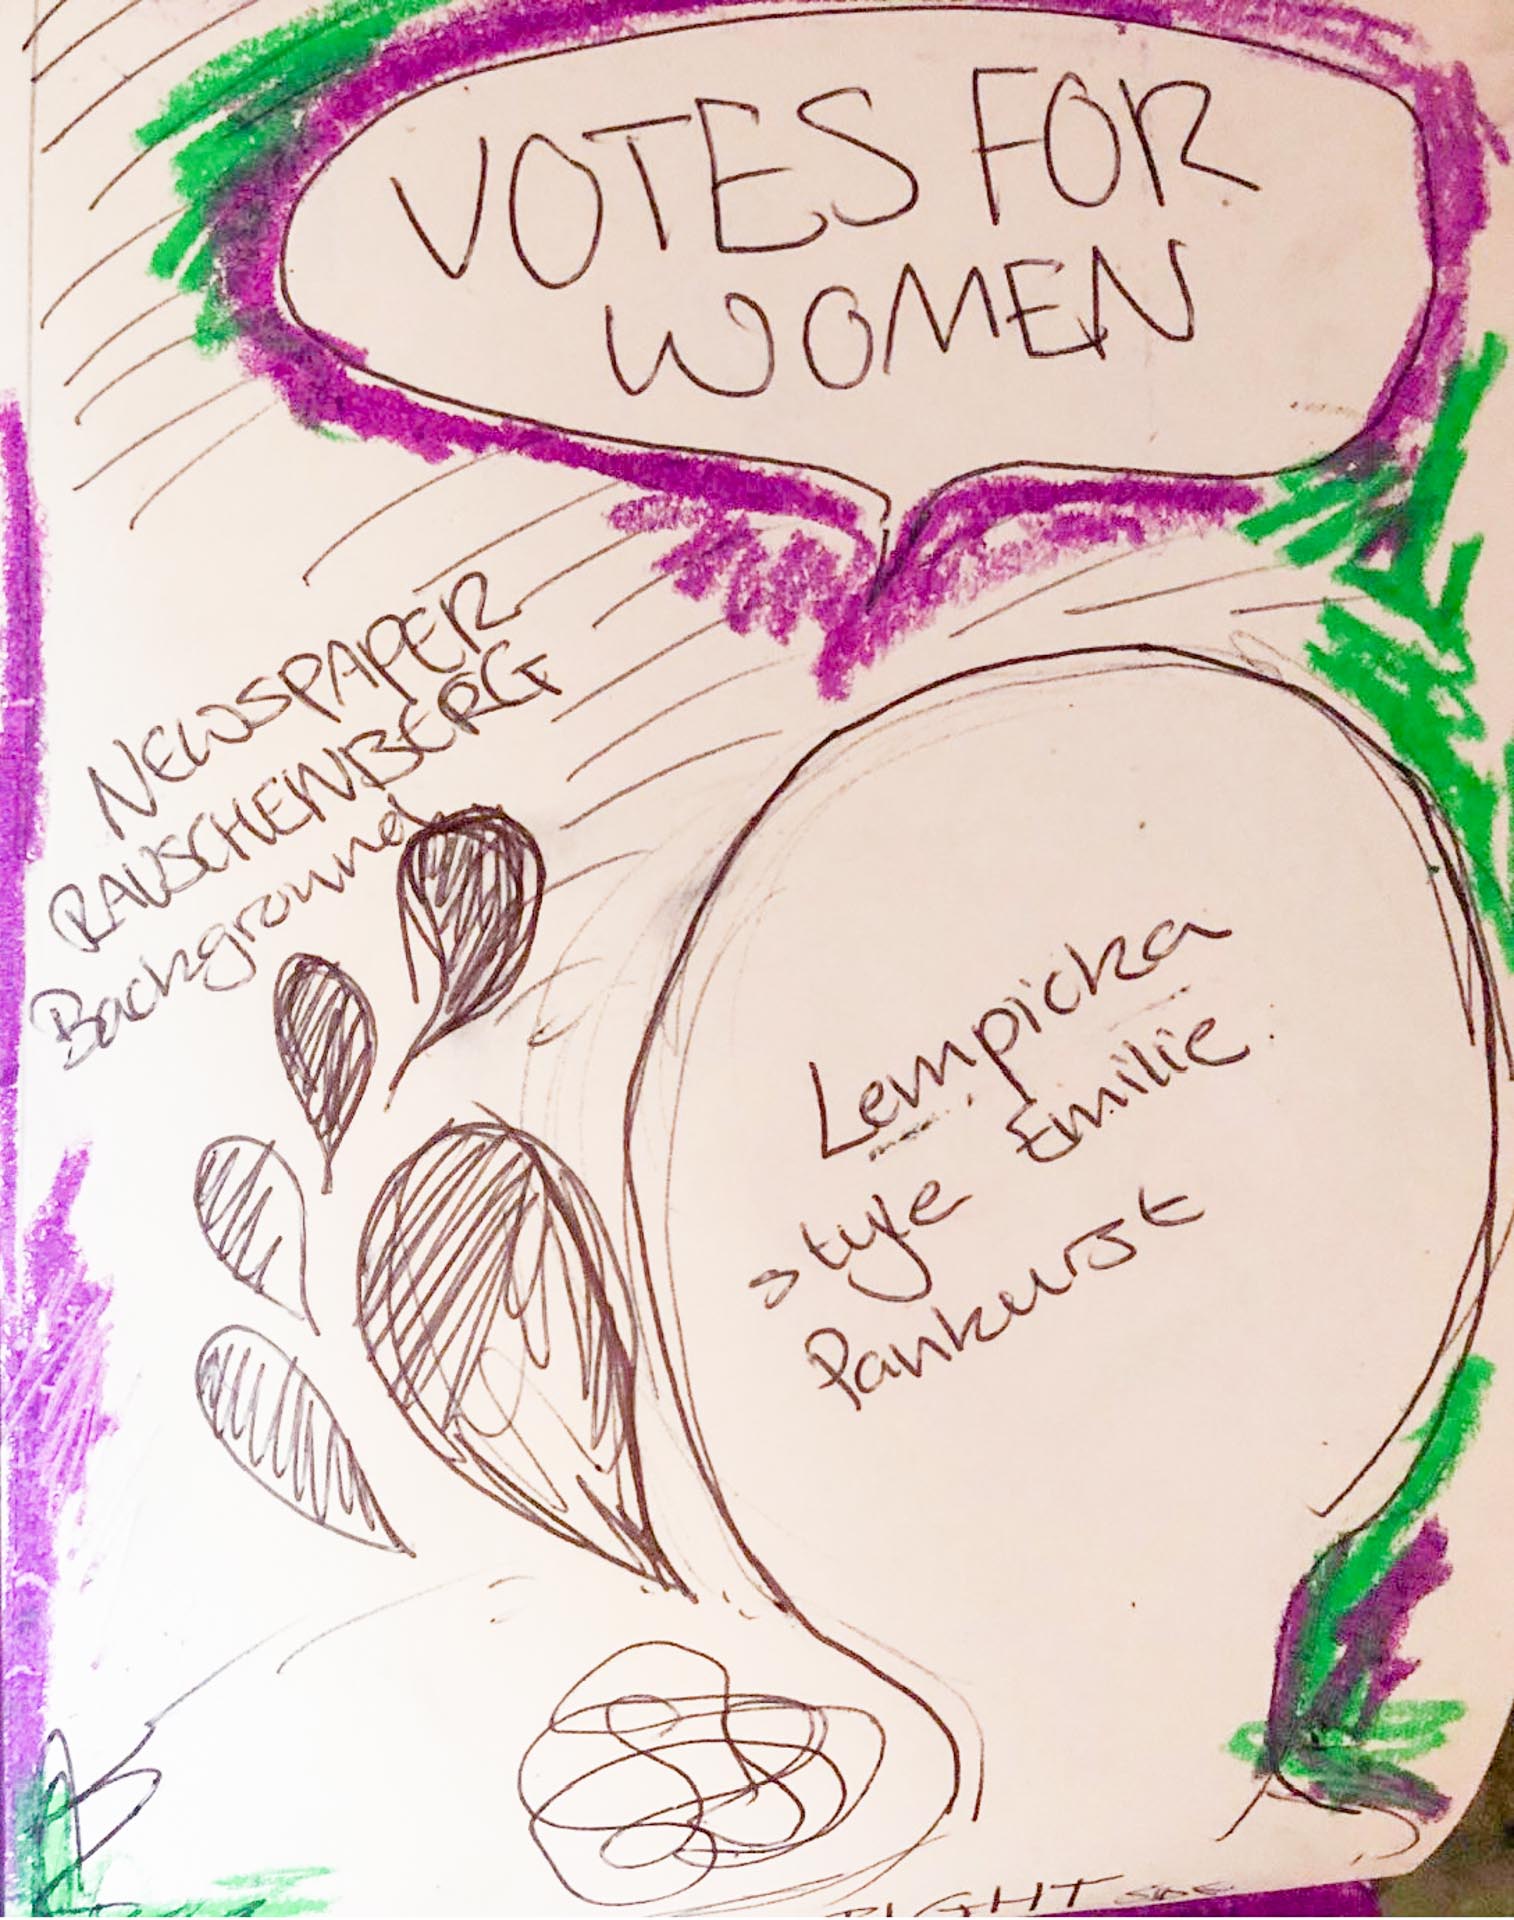 VOTES FOR
WOMEN
NEWSPAPER
RAUSCHENBERG
Background
Lempicka
style Emilie
Pankurst
RIGHT SIDE